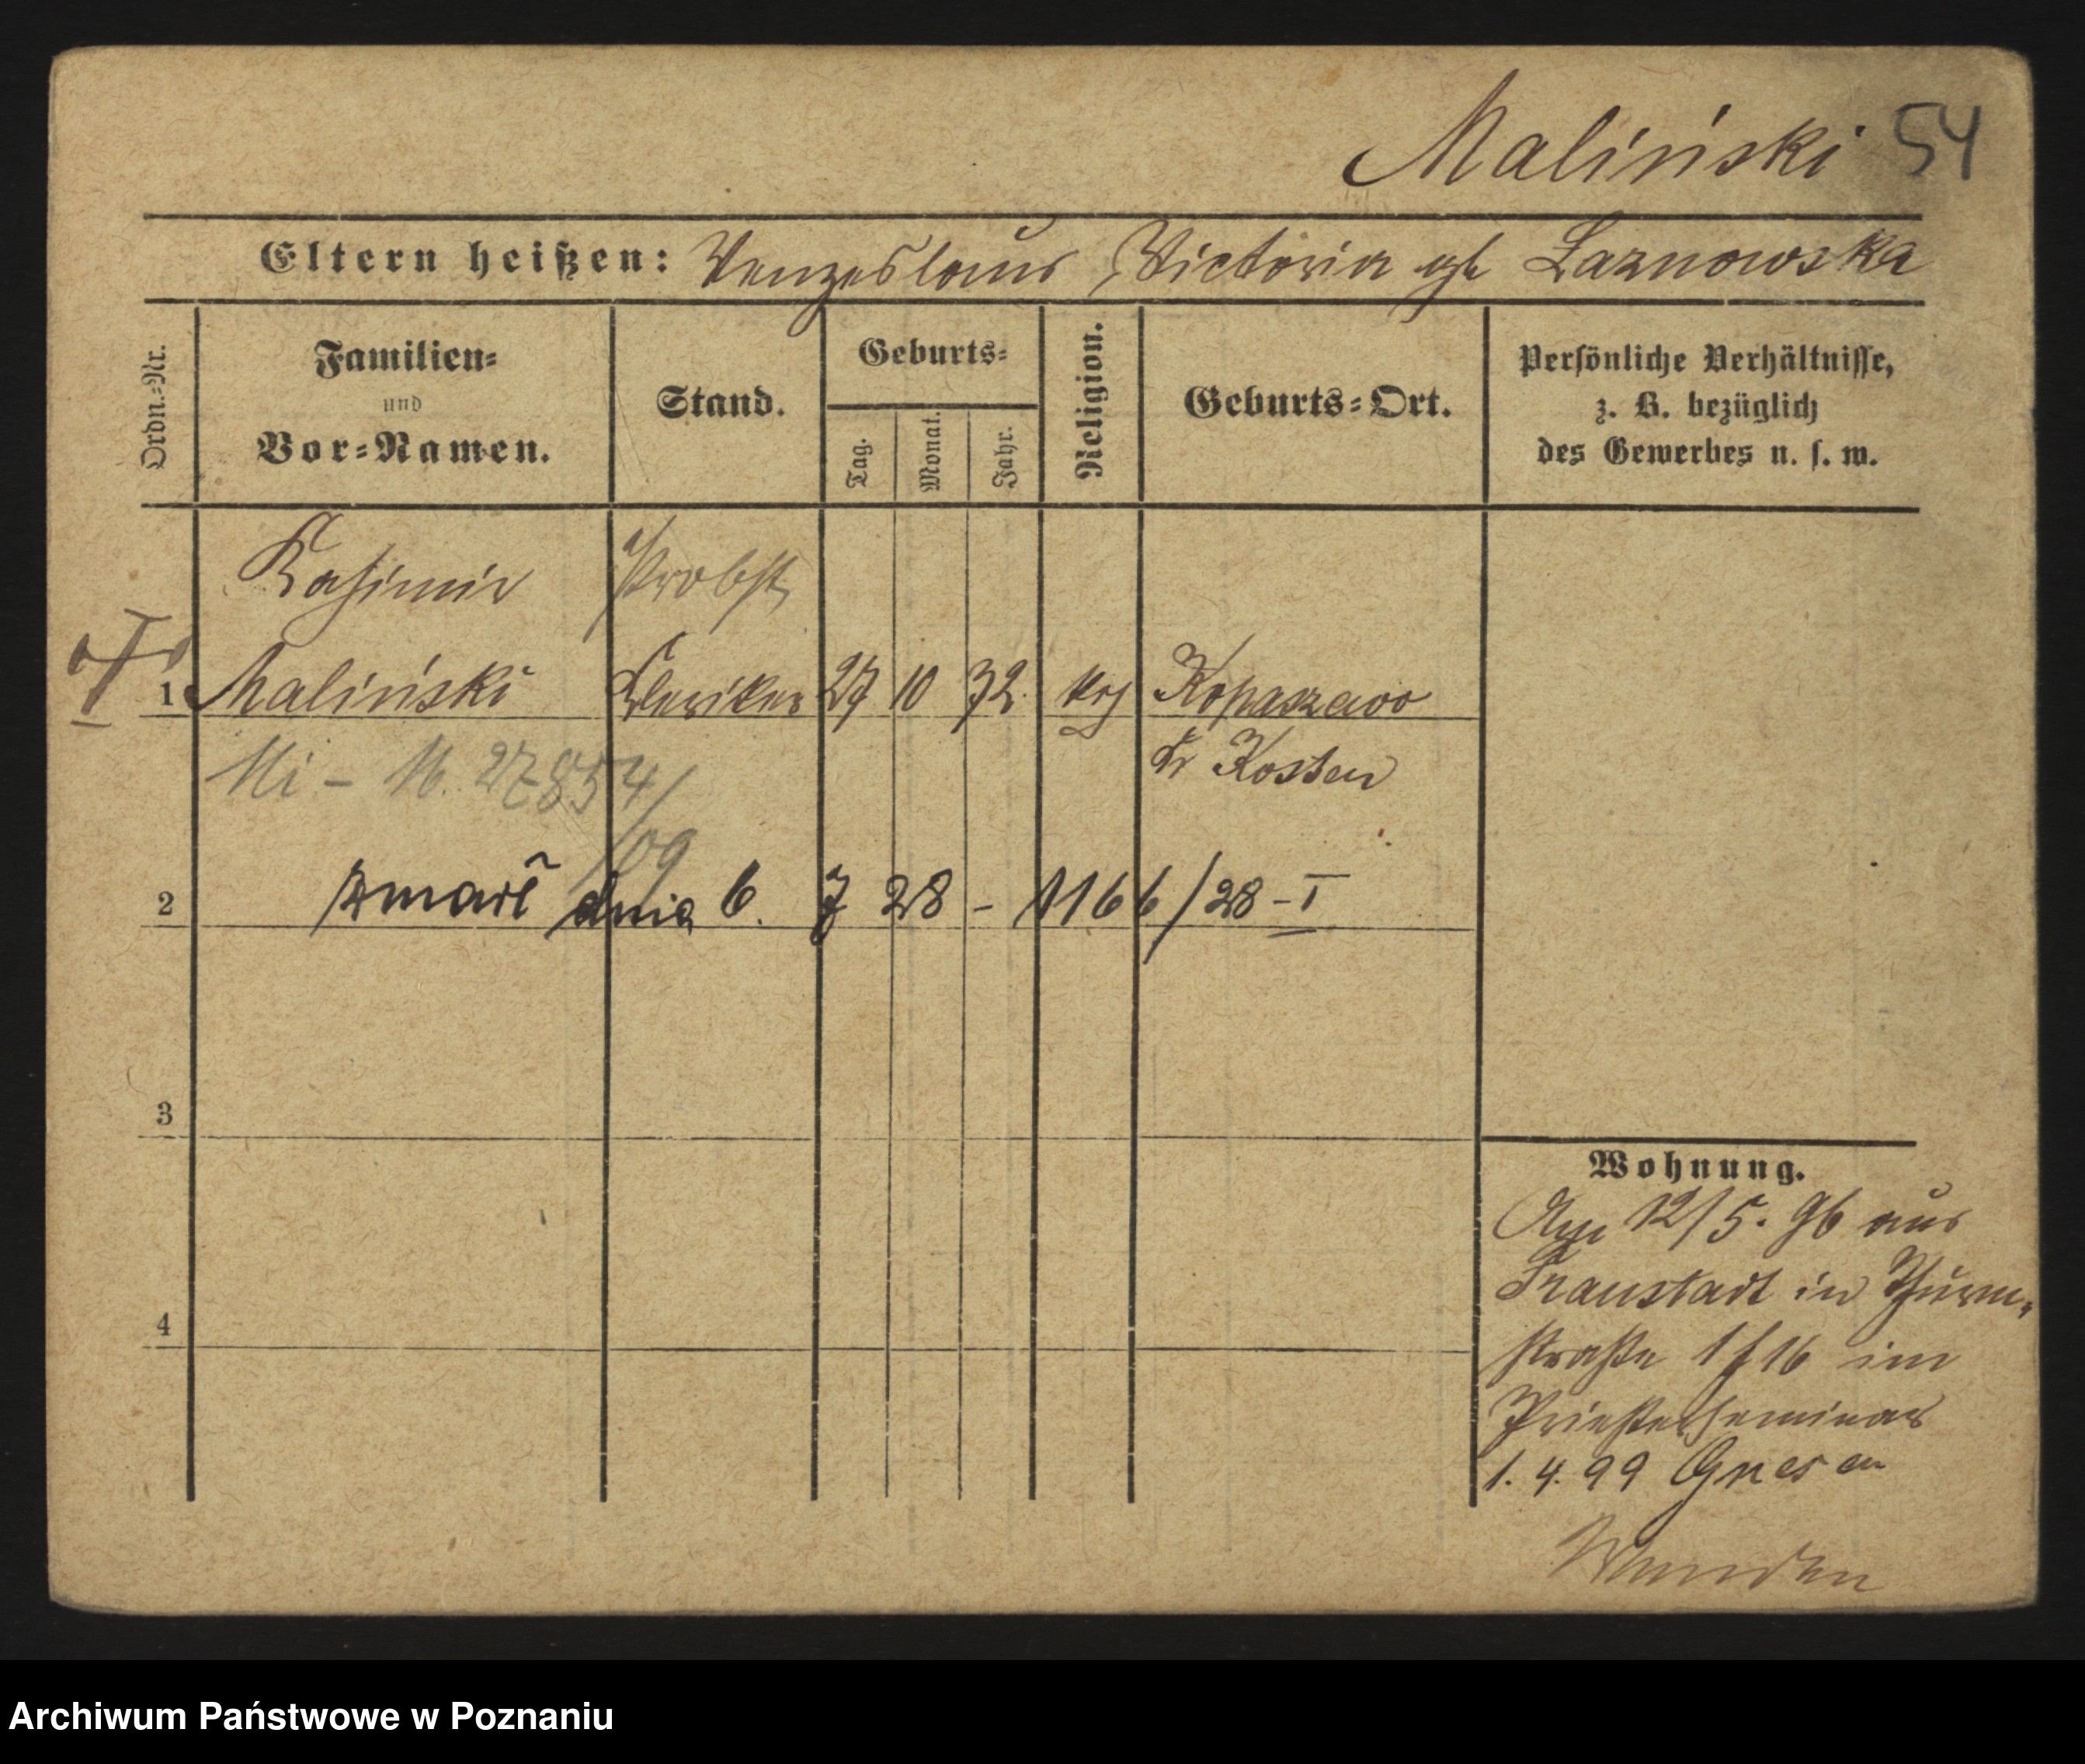 Maliński 54
Eltern heißen: Wenzeslaus, Victoria gb Laznowska
Ordn.-Nr.
Familien-
und
Vor-Namen.
Stand.
Geburts-
Tag.
Monat.
Jahr.
Religion.
Geburts-Ort.
Persönliche Verhältnisse,
z. B. bezüglich
des Gewerbes u. s. w.
Kasimir Probst
1 Maliński Kleriker 27 10 72. Kopaszewo
Kr Kosten
Mi - 16. 27854/
/09
2 zmarł dnia 6. 7 28 - 1166/28 - I
3
4
Wohnung.
12/5. 96 aus
Fraustadt in Thurm-
straße 1 f 16 im
Priesterseminar
1. 4. 99 Gnesen
Archiwum Państwowe w Poznaniu